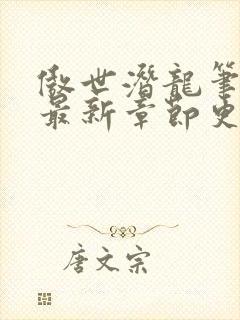 傲世潛龍筆
最新章節史
唐文宗